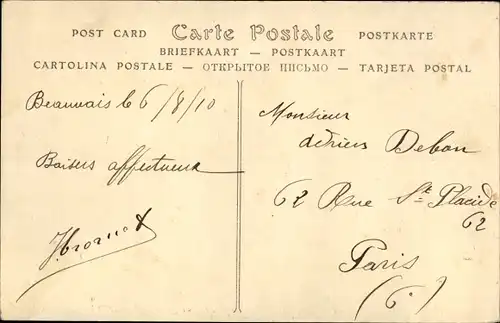 POST CARD Carte Postale POSTKARTE
BRIEFKAART — POSTKAART
CARTOLINA POSTALE — ОТКРЫТОЕ ПИСЬМО — TARJETA POSTAL
Beauvais le 6/8/10
Baisers affectueux
Monsieur
Debon
62 Rue St Placide
62
Paris
(6e)